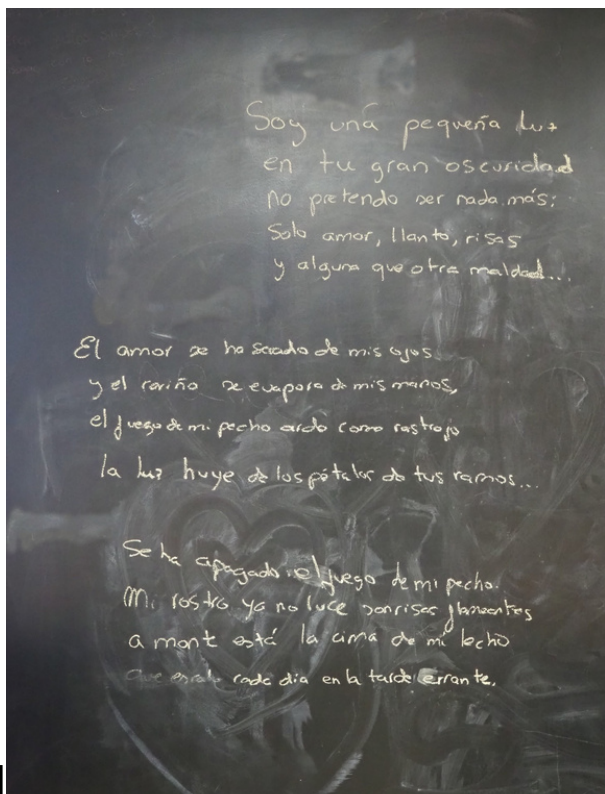 Soy una pequeña luz
en tu gran oscuridad
No pretendo ser nada más:
Solo amor, llanto, risas
y alguna que otra maldad...
El amor se ha secado de mis ojos
y el cariño se evapora de mis manos,
el fuego de mi pecho arde como rastrojo
la luz huye de los pétalos de tus ramos...
Se ha apagado el fuego de mi pecho.
Mi rostro ya no luce sonrisas flameantes
a monte está la cima de mi lecho
Que cada día en la tarde errante.